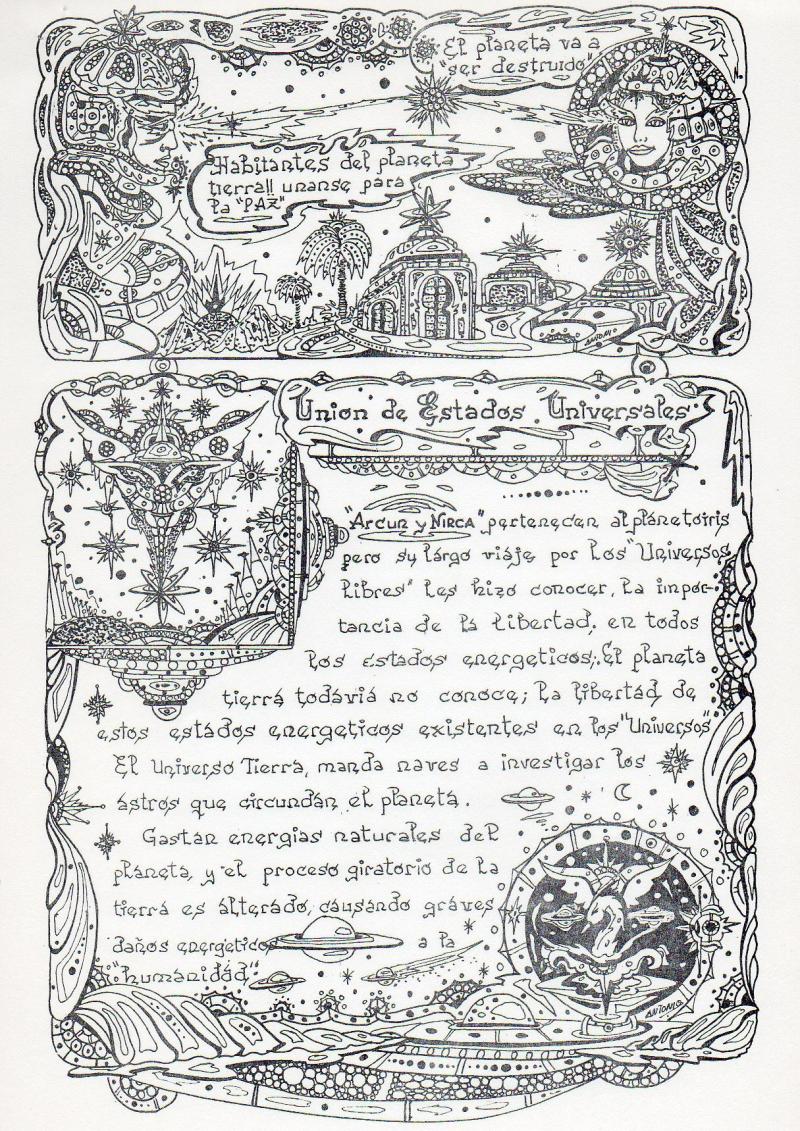 El planeta va a
"ser destruido"
Habitantes del planeta
tierra!! unanse para
la "PAZ"
ANTONIO
Union de Estados Universales
"Arcun y Nirca" pertenecen al planetoiris
pero su largo viaje por los "Universos
libres" les hizo conocer, la impor-
tancia de la libertad; en todos
los estados energeticos;. El planeta
tierra todavia no conoce; la libertad de
estos estados energeticos existentes en los "Universos"
El Universo Tierra, manda naves a investigar los
astros que circundan el planeta.
Gastan energias naturales del
planeta, y el proceso giratorio de la
tierra es alterado, causando graves
daños energeticos a la
"humanidad"
ANTONIO